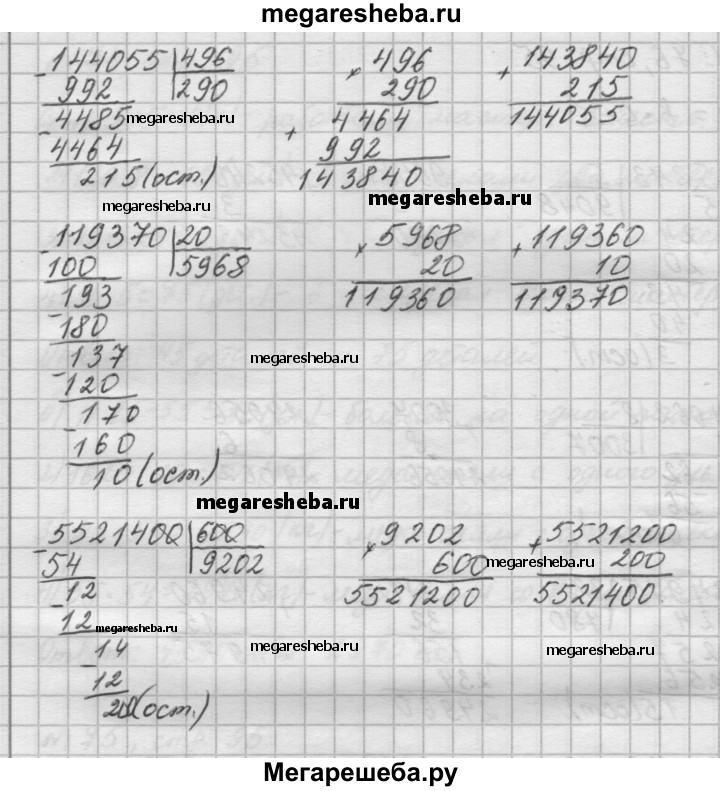 megaresheba.ru
144055 496 × 496 + 143840
- 992 290 290 215
- 4485 megaresheba.ru + 4464 144055
4464 992
215 (ост.) 143840
megaresheba.ru megaresheba.ru
- 119370 20 × 5968 + 119360
100 5968 20 10
- 193 119360 119370
180
- 137 megaresheba.ru megaresheba.ru
120
- 170
160
10 (ост.)
megaresheba.ru
- 5521400 600 × 9202 + 5521200
54 9202 600 megaresheba.ru 200
- 12 5521200 5521400.
12 megaresheba.ru
- 14 megaresheba.ru megaresheba.ru
12
200 (ост.)
Мегарешеба.ру